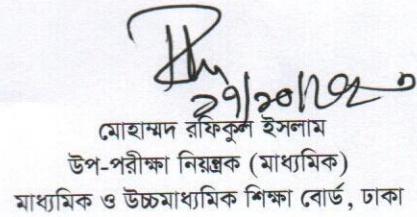 মোহাম্মদ রফিকুল ইসলাম
উপ-পরীক্ষা নিয়ন্ত্রক (মাধ্যমিক)
মাধ্যমিক ও উচ্চমাধ্যমিক শিক্ষা বোর্ড, ঢাকা